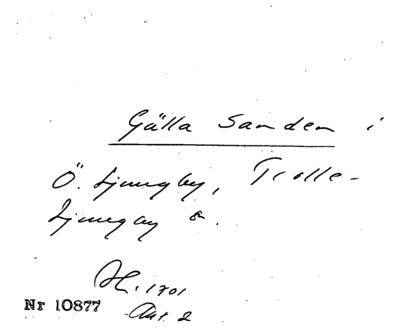 Gälla Sanden i
Ö. Ljungby, Trolle-
Ljungby s.
H. 1701
Nr 10877
Ant. 2